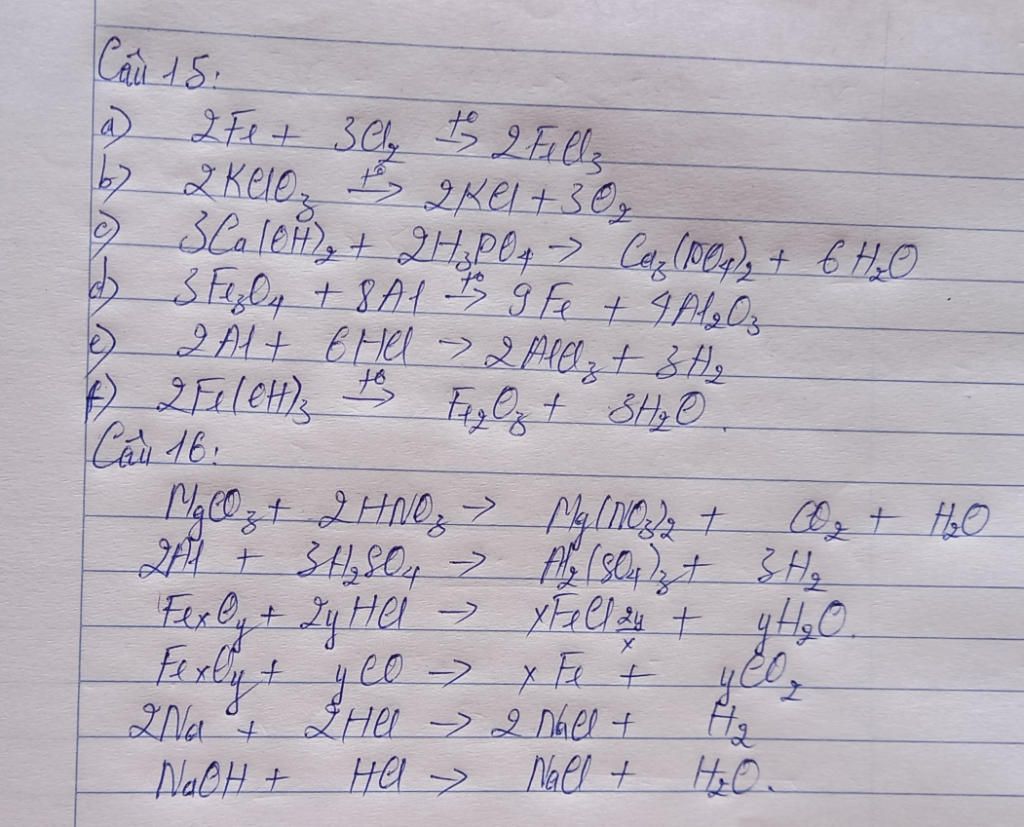 Câu 15:
a) 2Fe + 3Cl₂ →(t°) 2FeCl₃
b) 2KClO₃ →(t°) 2KCl + 3O₂
c) 3Ca(OH)₂ + 2H₃PO₄ → Ca₃(PO₄)₂ + 6H₂O
d) 3Fe₃O₄ + 8Al →(t°) 9Fe + 4Al₂O₃
e) 2Al + 6HCl → 2AlCl₃ + 3H₂
f) 2Fe(OH)₃ →(t°) Fe₂O₃ + 3H₂O.
Câu 16:
MgCO₃ + 2HNO₃ → Mg(NO₃)₂ + CO₂ + H₂O
2Al + 3H₂SO₄ → Al₂(SO₄)₃ + 3H₂
FexOy + 2yHCl → xFeCl2y/x + yH₂O.
FexOy + yCO → xFe + yCO₂
2Na + 2HCl → 2NaCl + H₂
NaOH + HCl → NaCl + H₂O.